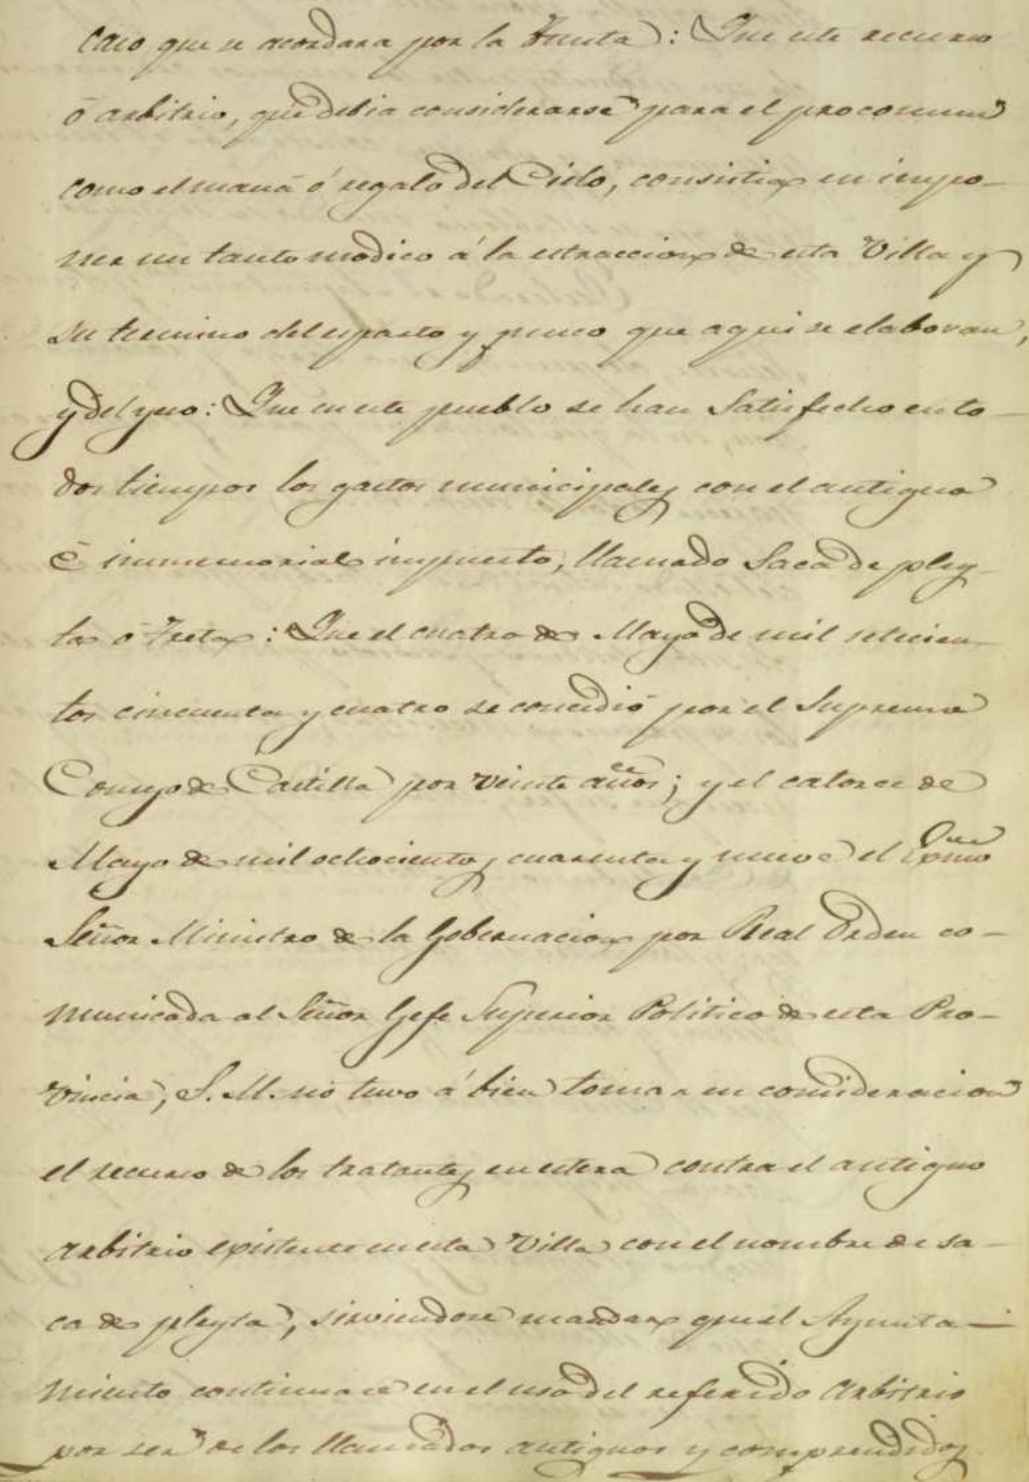 caso que se acordara por la Junta): Que este recurso
ó arbitrio, que debia considerarse para el procomun
como el maná ó regalo del Cielo, consistia en impo-
ner un tanto modico á la estraccion de esta Villa y
su termino del esparto y junco que aqui se elaboran,
y del yeso: Que en este pueblo se han satisfecho en to-
dos tiempos los gastos municipales con el antiguo
é inmemorial impuesto, llamado Saca de pley-
ta ó Treta: Que el cuatro de Mayo de mil setecien-
tos cincuenta y cuatro se concedió por el Supremo
Consejo de Castilla por veinte años; y el catorce de
Mayo de mil ochocientos cuarenta y nueve el Exmo
Señor Ministro de la Gobernacion por Real Orden co-
municada al Señor Gefe Superior Politico de esta Pro-
vincia, S. M. no tuvo á bien tomar en consideracion
el recurso de los tratantes en estera contra el antiguo
arbitrio existente en esta Villa con el nombre de sa-
ca de pleyta, sirviendose mandar que el Ayunta-
miento continuase en el uso del referido arbitrio
por ser de los llamados antiguos y comprendidos